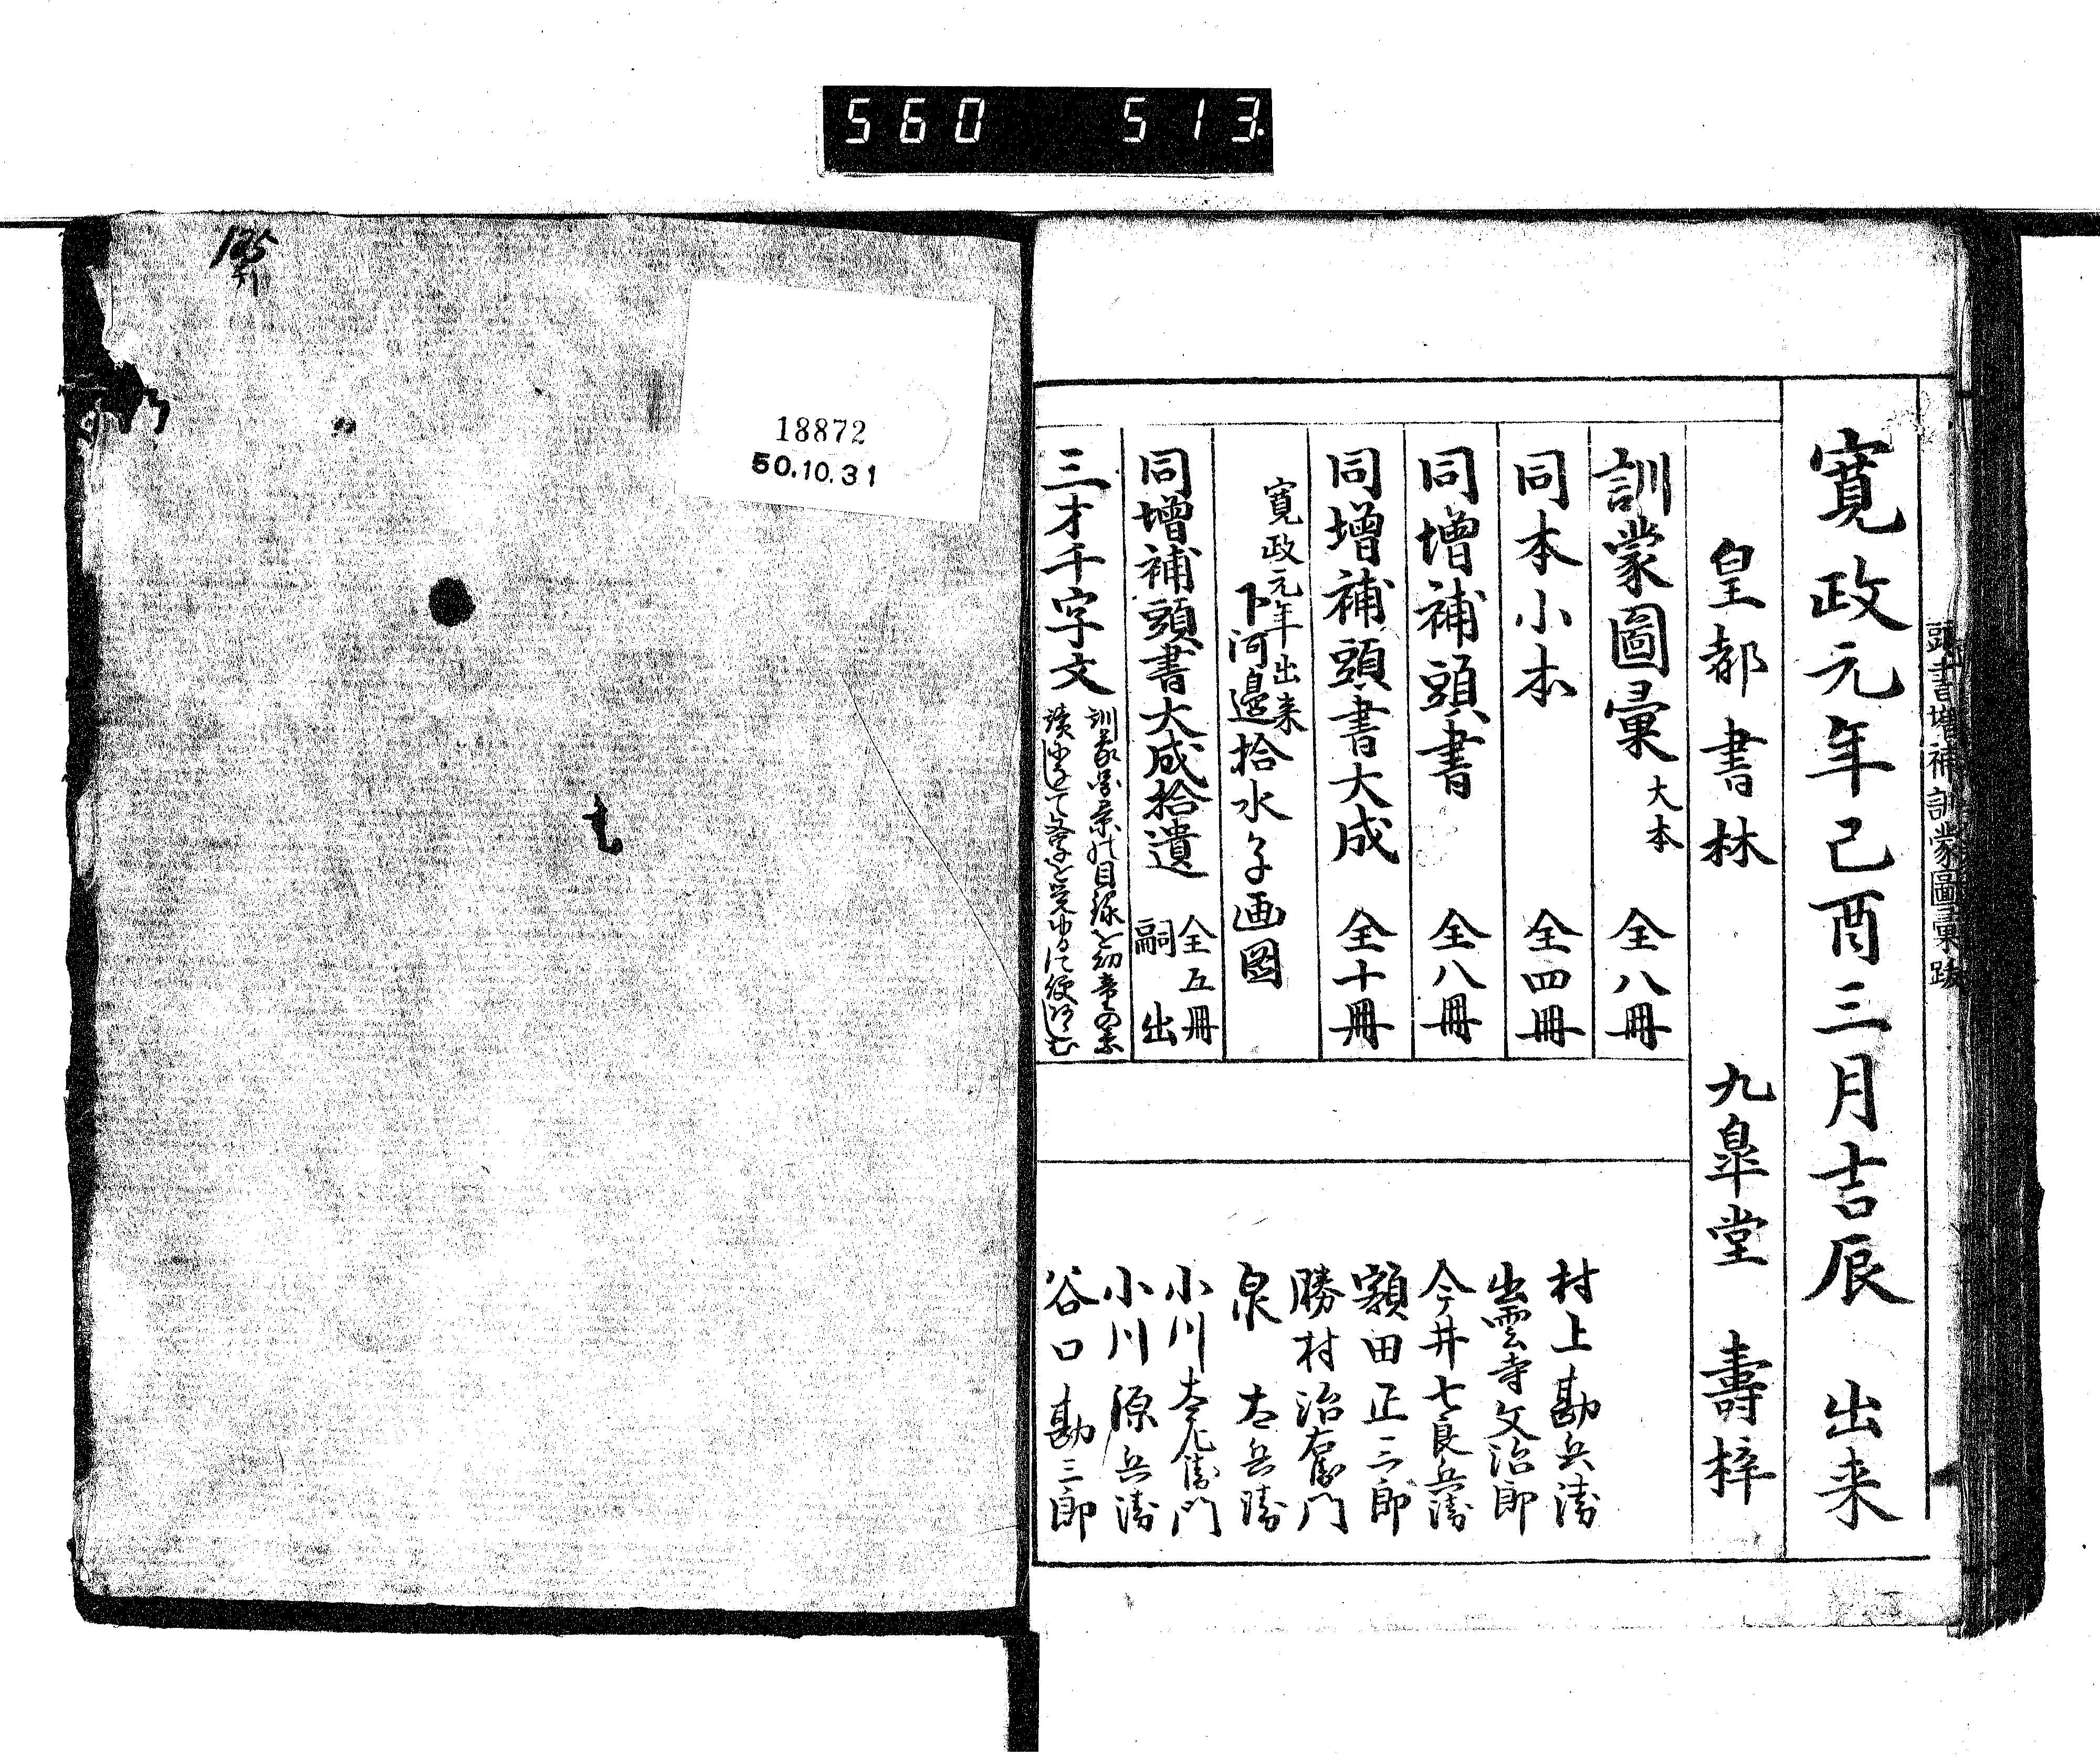 560 513.
頭書増補訓蒙圖彙跋
寛政元年己酉三月吉辰 出来
皇都書林 九皐堂 壽梓
訓蒙圖彙 大本 全八冊
同本小本 全四冊
同増補頭書 全八冊
同増補頭書大成 全十冊
寛政元年出来
下河邉拾水子画圖
同増補頭書大成拾遺 全五冊
嗣出
三才千字文
村上勘兵衛
出雲寺文治郎
今井七良兵衛
額田正三郎
勝村治右衛門
泉太兵衛
小川太左衛門
小川源兵衛
谷口勘三郎
18872
50.10.31